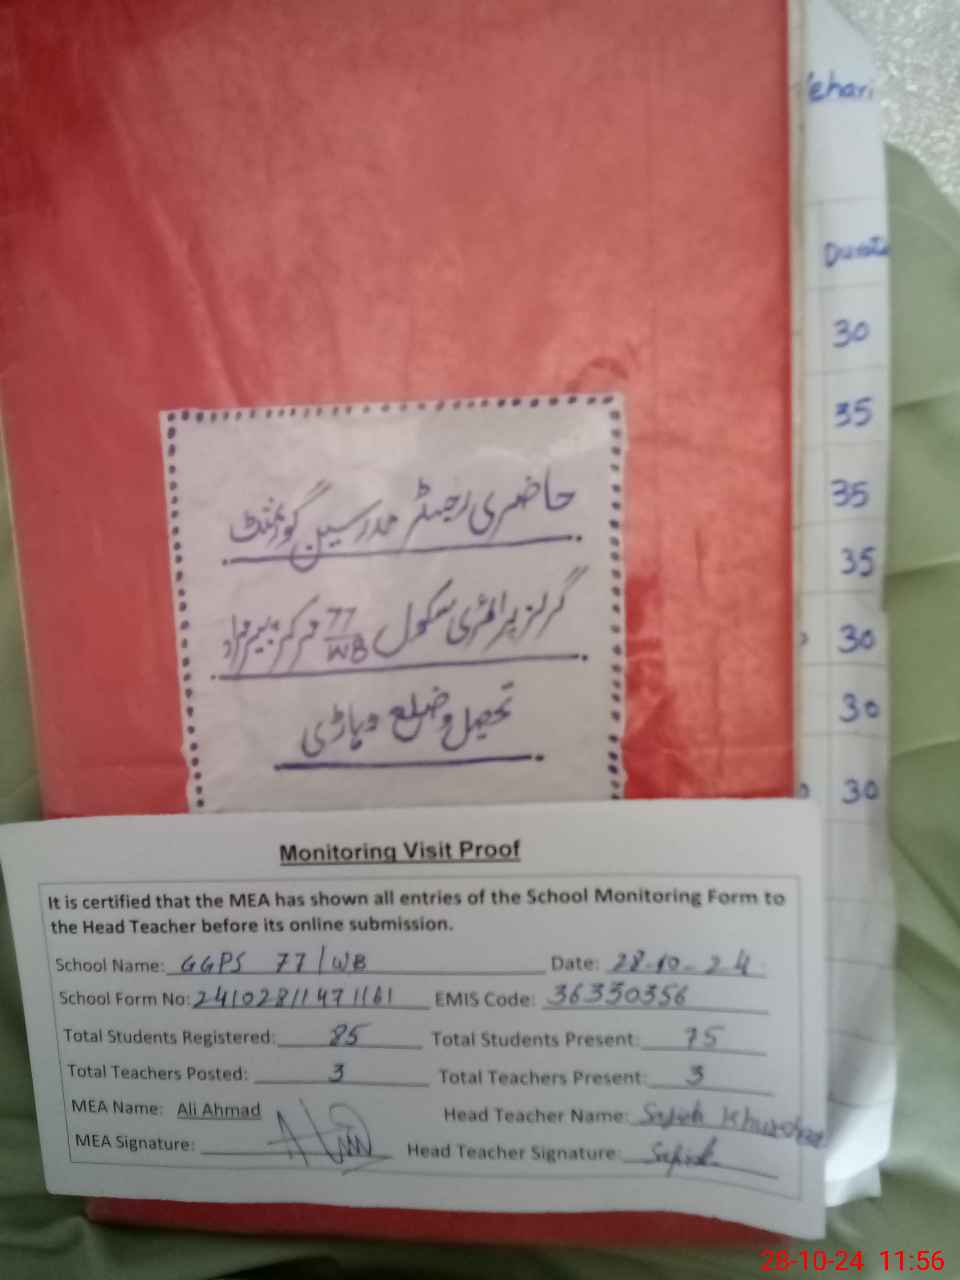 ehari
Durati
30
35
35
35
30
30
30
حاضری رجسٹر مدرسین گورنمنٹ
گرلز پرائمری سکول 77/WB مرکز پیر مراد
تحصیل و ضلع وہاڑی
Monitoring Visit Proof
It is certified that the MEA has shown all entries of the School Monitoring Form to
the Head Teacher before its online submission.
School Name: GGPS 77/WB Date: 28-10-24
School Form No: 241028111471161 EMIS Code: 36330356
Total Students Registered: 85 Total Students Present: 75
Total Teachers Posted: 3 Total Teachers Present: 3
MEA Name: Ali Ahmad Head Teacher Name:
MEA Signature: Head Teacher Signature:
28-10-24 11:56